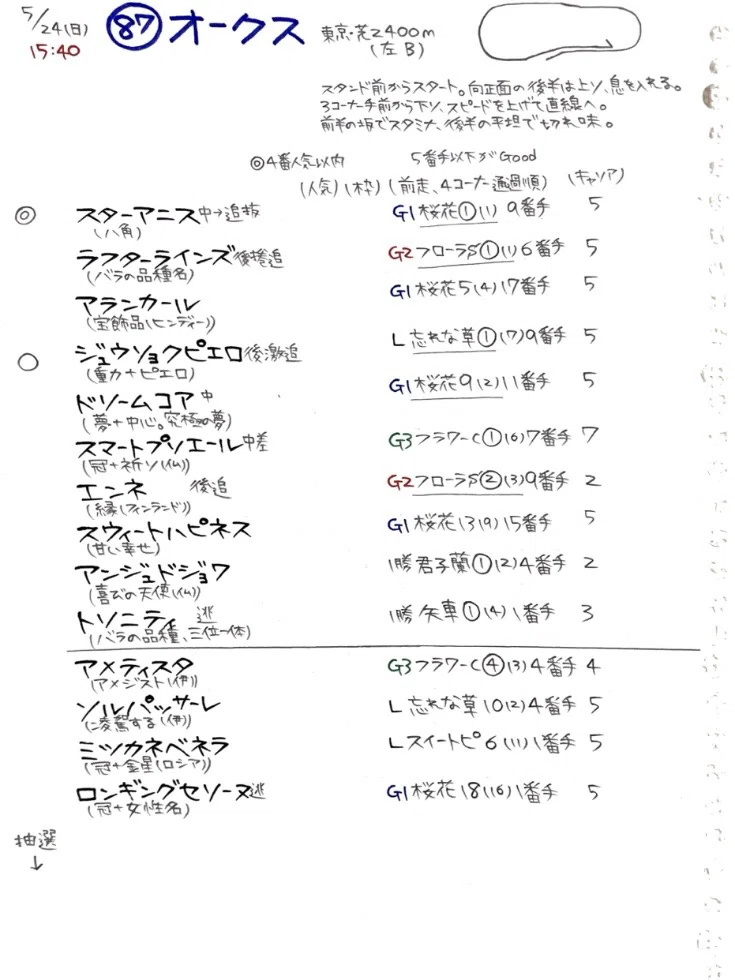 5/24(日) 15:40
87 オークス
東京・芝2400m
(左B)
スタンド前からスタート。向正面の後半は上り、息を入れる。
3コーナー手前から下り、スピードを上げて直線へ。
前半の坂でスタミナ、後半の平坦で切れ味。
◎4番人気以内 5番手以下がGood
(人気)(枠)(前走、4コーナー通過順)(キャリア)
◎ スターアニス 中→追抜 G1 桜花①(1) 9番手 5
(八角)
ラフターラインズ 後捲追 G2 フローラS①(1) 6番手 5
(バラの品種名)
アランカール G1 桜花5(4) 17番手 5
(宝飾品(ヒンディー))
○ ジュウリョクピエロ 後激追 L 忘れな草①(7) 9番手 5
(重力+ピエロ)
ドリームコア 中 G1 桜花9(2) 11番手 5
(夢+中心。究極の夢)
スマートプリエール 中差 G3 フラワーC①(6) 7番手 7
(冠+祈り(仏))
エンネ 後追 G2 フローラS②(3) 9番手 2
(縁(フィンランド))
スウィートハピネス G1 桜花13(9) 15番手 5
(甘い幸せ)
アンジュドジョワ 1勝 君子蘭①(2) 4番手 2
(喜びの天使(仏))
トリニティ 逃 1勝 矢車①(4) 1番手 3
(バラの品種、三位一体)
アメティスタ G3 フラワーC④(3) 4番手 4
(アメジスト(伊))
ソルパッサーレ L 忘れな草10(2) 4番手 5
(凌駕する(伊))
ミツカネベネラ L スイートピ6(11) 1番手 5
(冠+金星(ロシア))
ロンギングセリーヌ 逃 G1 桜花18(16) 1番手 5
(冠+女性名)
抽選
↓